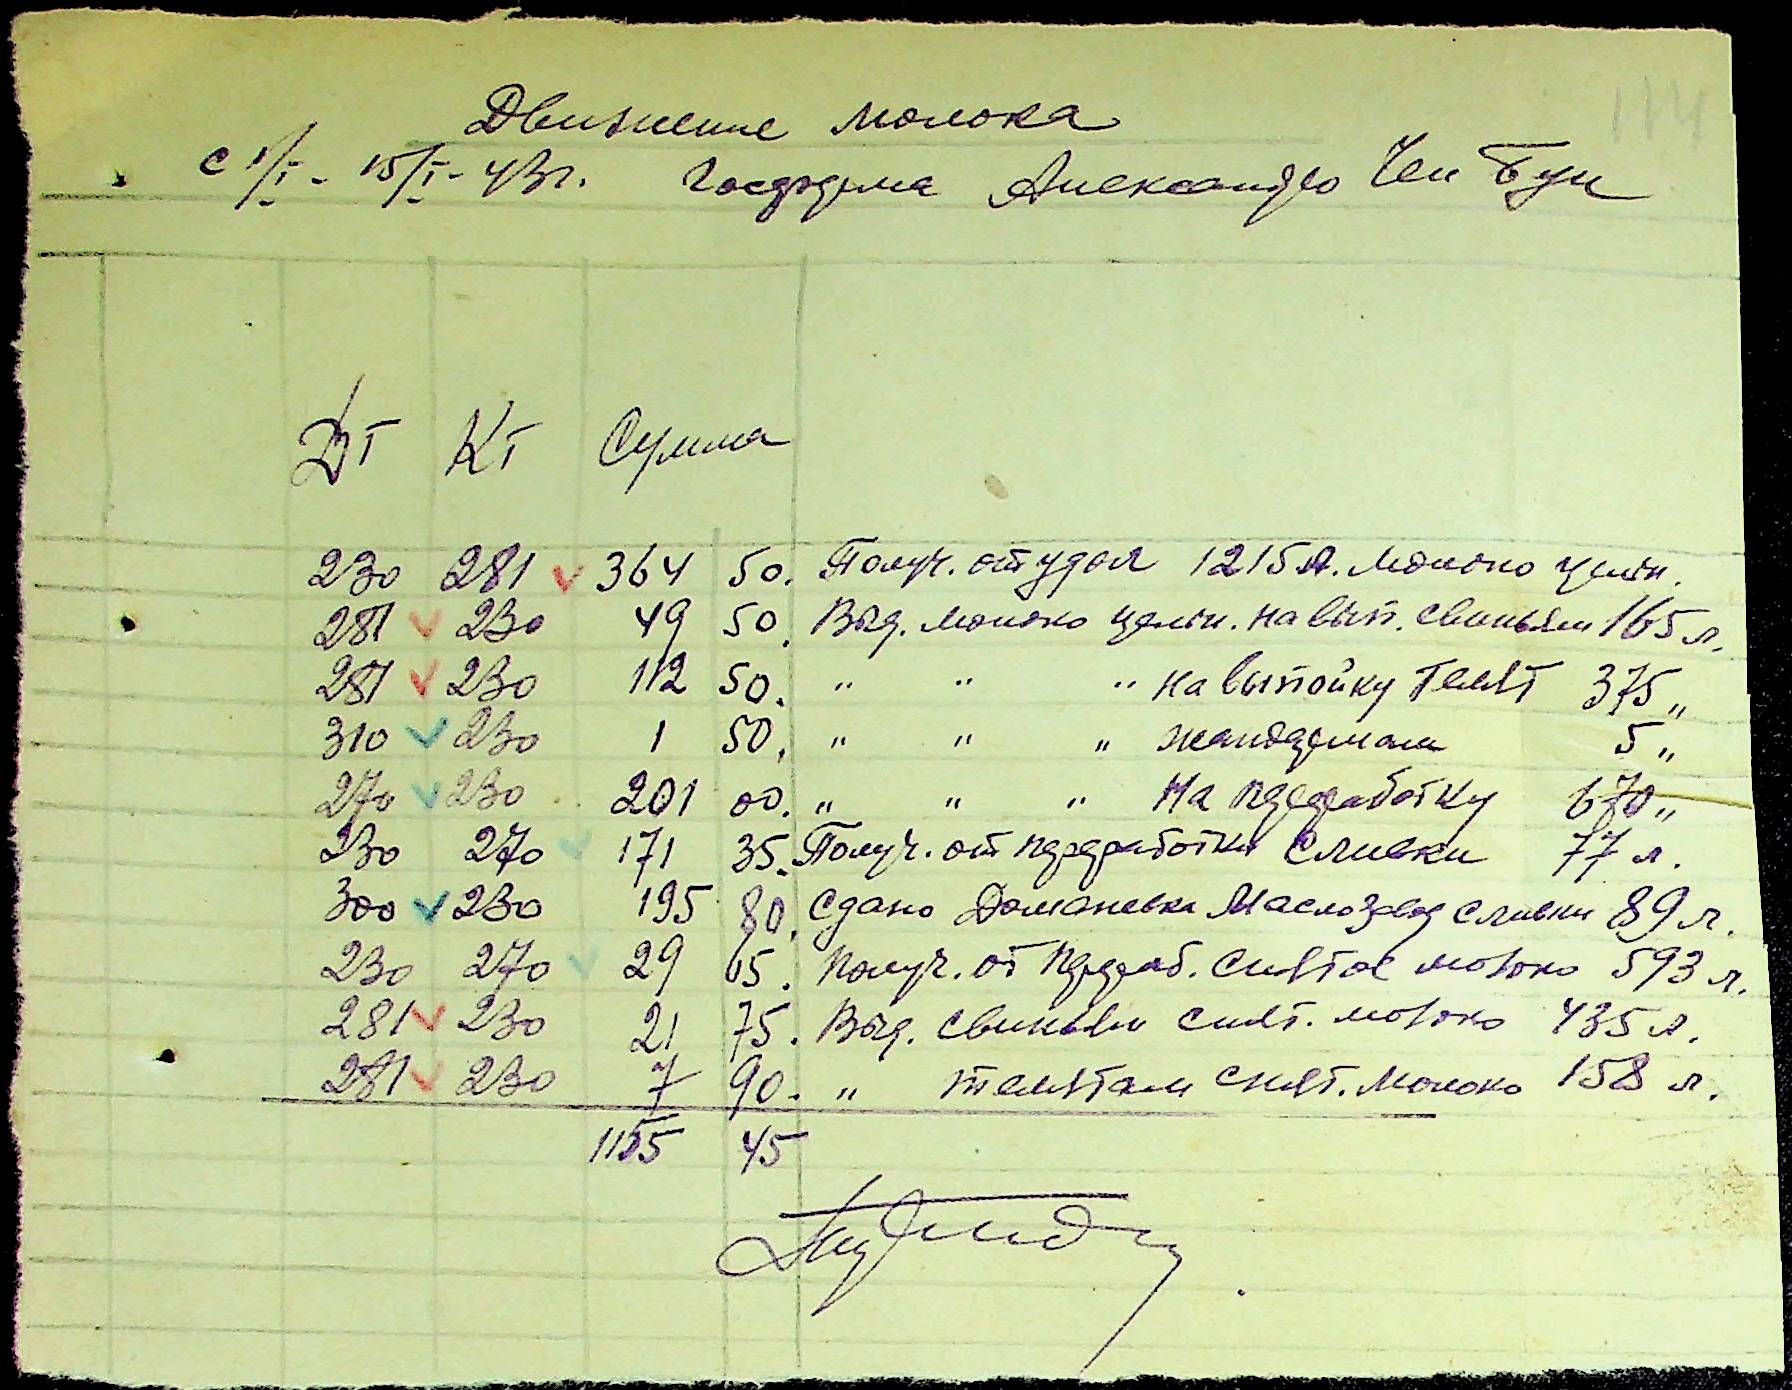 174
Движение молока
с 1/I - 15/I - 43г. Госфермa Александро Чен Бун
Дт Кт Сумма
230 281 364 50. Получ. от удоя 1215 л. молоко цельн.
281 230 49 50. Выд. молоко цельн. на вып. свиньям 165 л.
281 230 112 50. " " " на выпойку телят 375 "
310 230 1 50. " " " жандармам 5 "
270 230 201 00. " " " на переработку 670 "
230 270 171 35. Получ. от переработки сливки 77 л.
300 230 195 80. Сдано Доманевка Маслозавод сливки 89 л.
230 270 29 65. Получ. от перераб. снятое молоко 593 л.
281 230 21 75. Выд. свиньям снят. молоко 435 л.
281 230 7 90. " телятам снят. молоко 158 л.
1155 45